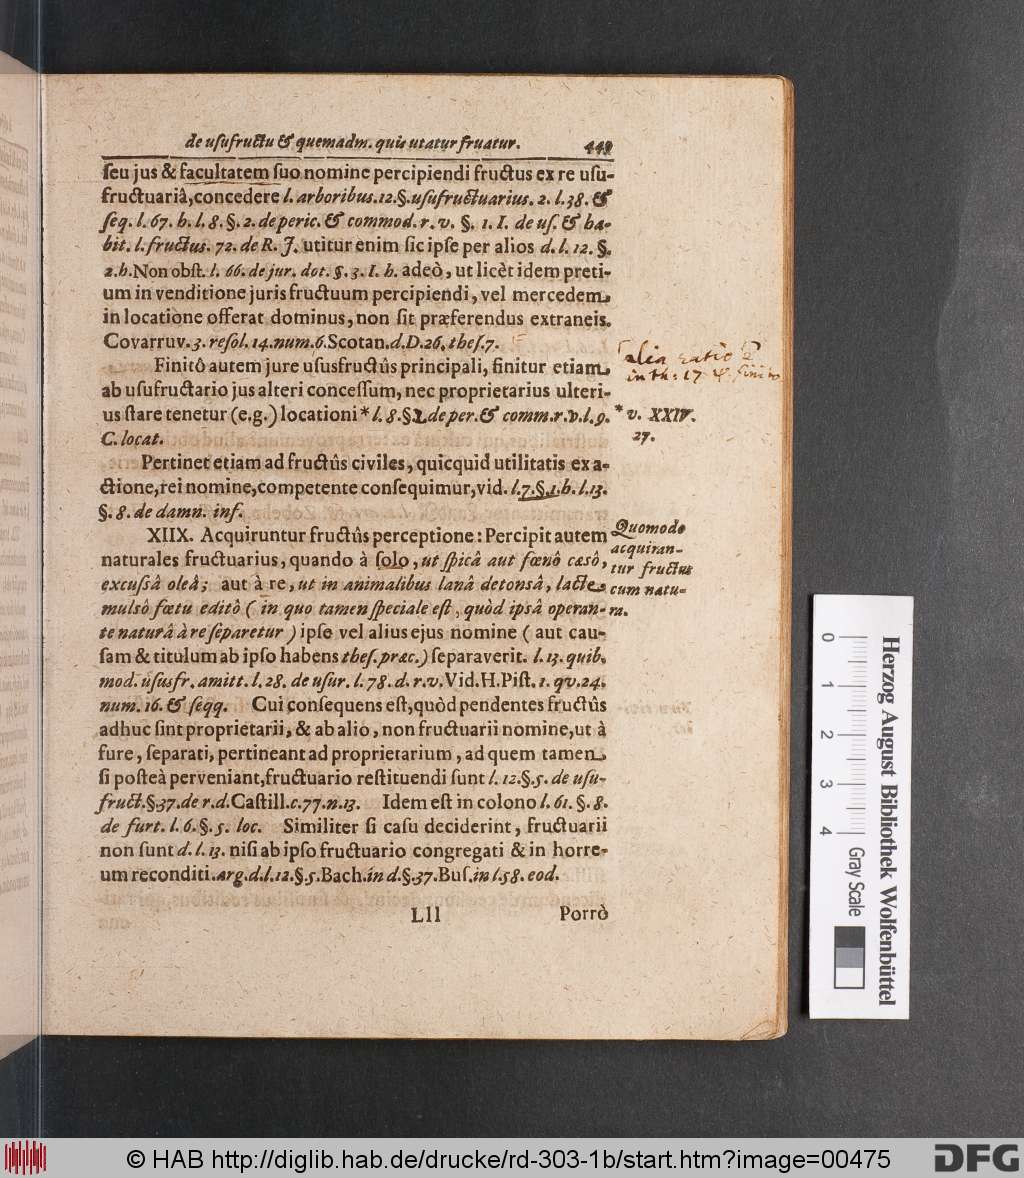 de usufructu & quemadm. quis utatur fruatur. 449
ſeu jus & facultatem ſuo nomine percipiendi fructus ex re uſu-
fructuariâ, concedere l. arboribus. 12. §. uſufructuarius. 2. l. 38. &
ſeq. l. 67. h. l. 8. §. 2. de peric. & commod. r. v. §. 1. I. de uſ. & ha-
bit. l. fructus. 72. de R. J. utitur enim ſic ipſe per alios d. l. 12. §.
2. h. Non obſt. l. 66. de jur. dot. §. 3. I. h. adeò, ut licèt idem preti-
um in venditione juris fructuum percipiendi, vel mercedem
in locatione offerat dominus, non ſit præferendus extraneis.
Covarruv. 3. reſol. 14. num. 6. Scotan. d. D. 26. theſ. 7.
Finitô autem jure uſusfructûs principali, finitur etiam
ab uſufructario jus alteri conceſſum, nec proprietarius ulteri-
us ſtare tenetur (e.g.) locationi * l. 8. § 2. de per. & comm. r. v. l. 9.
C. locat.
Pertinet etiam ad fructûs civiles, quicquid utilitatis ex a-
ctione, rei nomine, competente conſequimur, vid. l. 7. §. 1. h. l. 13.
§. 8. de damn. inf.
XIIX. Acquiruntur fructûs perceptione: Percipit autem
naturales fructuarius, quando à ſolo, ut ſpicâ aut fœnô caſô,
excuſsâ oleâ; aut à re, ut in animalibus lanâ detonsâ, lacte
mulsô fœtu editô ( in quo tamen ſpeciale eſt, quòd ipsâ operan-
te naturâ à re ſeparetur ) ipſe vel alius ejus nomine ( aut cau-
ſam & titulum ab ipſo habens theſ. præc. ) ſeparaverit. l. 13. quib.
mod. uſusfr. amitt. l. 28. de uſur. l. 78. d. r. v. Vid. H. Piſt. 1. qv. 24.
num. 16. & ſeqq. Cui conſequens eſt, quòd pendentes fructûs
adhuc ſint proprietarii, & ab alio, non fructuarii nomine, ut à
fure, ſeparati, pertineant ad proprietarium, ad quem tamen
ſi poſteà perveniant, fructuario reſtituendi ſunt l. 12. §. 5. de uſu-
fruct. §. 37. de r. d. Caſtill. c. 77. n. 13. Idem eſt in colono l. 61. §. 8.
de furt. l. 6. §. 5. loc. Similiter ſi caſu deciderint, fructuarii
non ſunt d. l. 13. niſi ab ipſo fructuario congregati & in horre-
um reconditi. arg. d. l. 12. §. 5. Bach. in d. §. 37. Buſ. in l. 58. eod.
Lll Porrò
alia ratio
in th: 17
* v. XXIV.
27.
Quomodo
acquiran-
tur fructus
cum natu-
ra.
0 1 2 3 4 Gray Scale
Herzog August Bibliothek Wolfenbüttel
© HAB http://diglib.hab.de/drucke/rd-303-1b/start.htm?image=00475
DFG